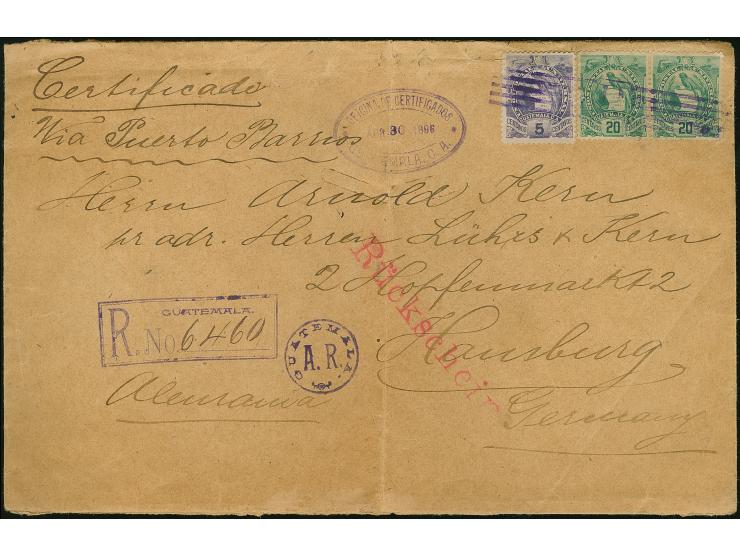 Certificado
Via Puerto Barrios
OFICINA DE CERTIFICADOS
APR 30 1896
GUATEMALA, C. A.
5
20
20
Herrn Arnold Kern
pr adr. Herren Lührs & Kern
2 Hopfenmarkt 2
Hamburg
Germany
Rückschein
GUATEMALA.
R. No 6460
GUATEMALA.
A. R.
Alemania